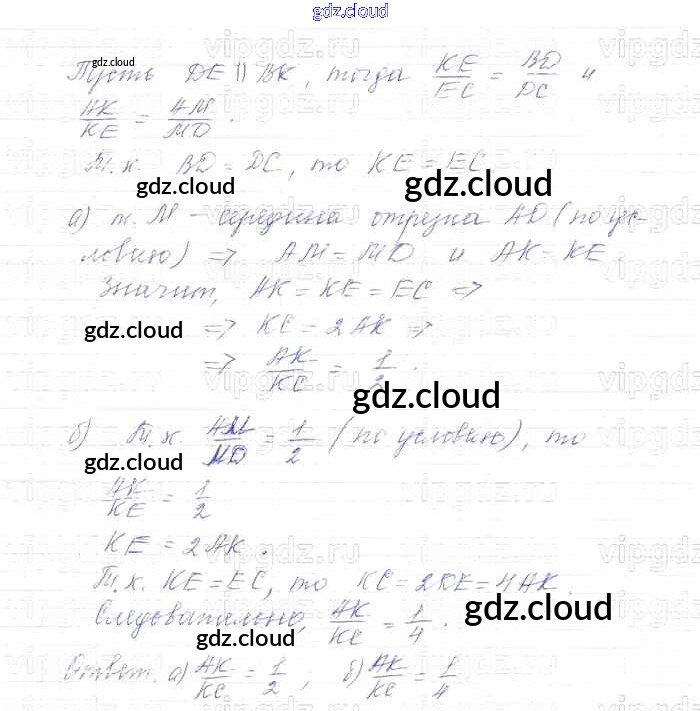 gdz.cloud
gdz.cloud
Пусть DE || BK, тогда KE/EC = BD/DC и
AK/KE = AM/MD.
Т.к. BD = DC, то KE = EC
gdz.cloud gdz.cloud
а) т. M – середина отрезка AD (по ус-
ловию) => AM = MD и AK = KE
Значит, AK = KE = EC =>
gdz.cloud => KC = 2AK =>
=> AK/KC = 1/2.
gdz.cloud
б) Т.к. AM/MD = 1/2 (по условию), то
gdz.cloud
AK/KE = 1/2
KE = 2AK.
Т.к. KE = EC, то KC = 2KE = 4AK.
Следовательно, AK/KC = 1/4.
gdz.cloud
gdz.cloud
Ответ. а) AK/KC = 1/2, б) AK/KC = 1/4